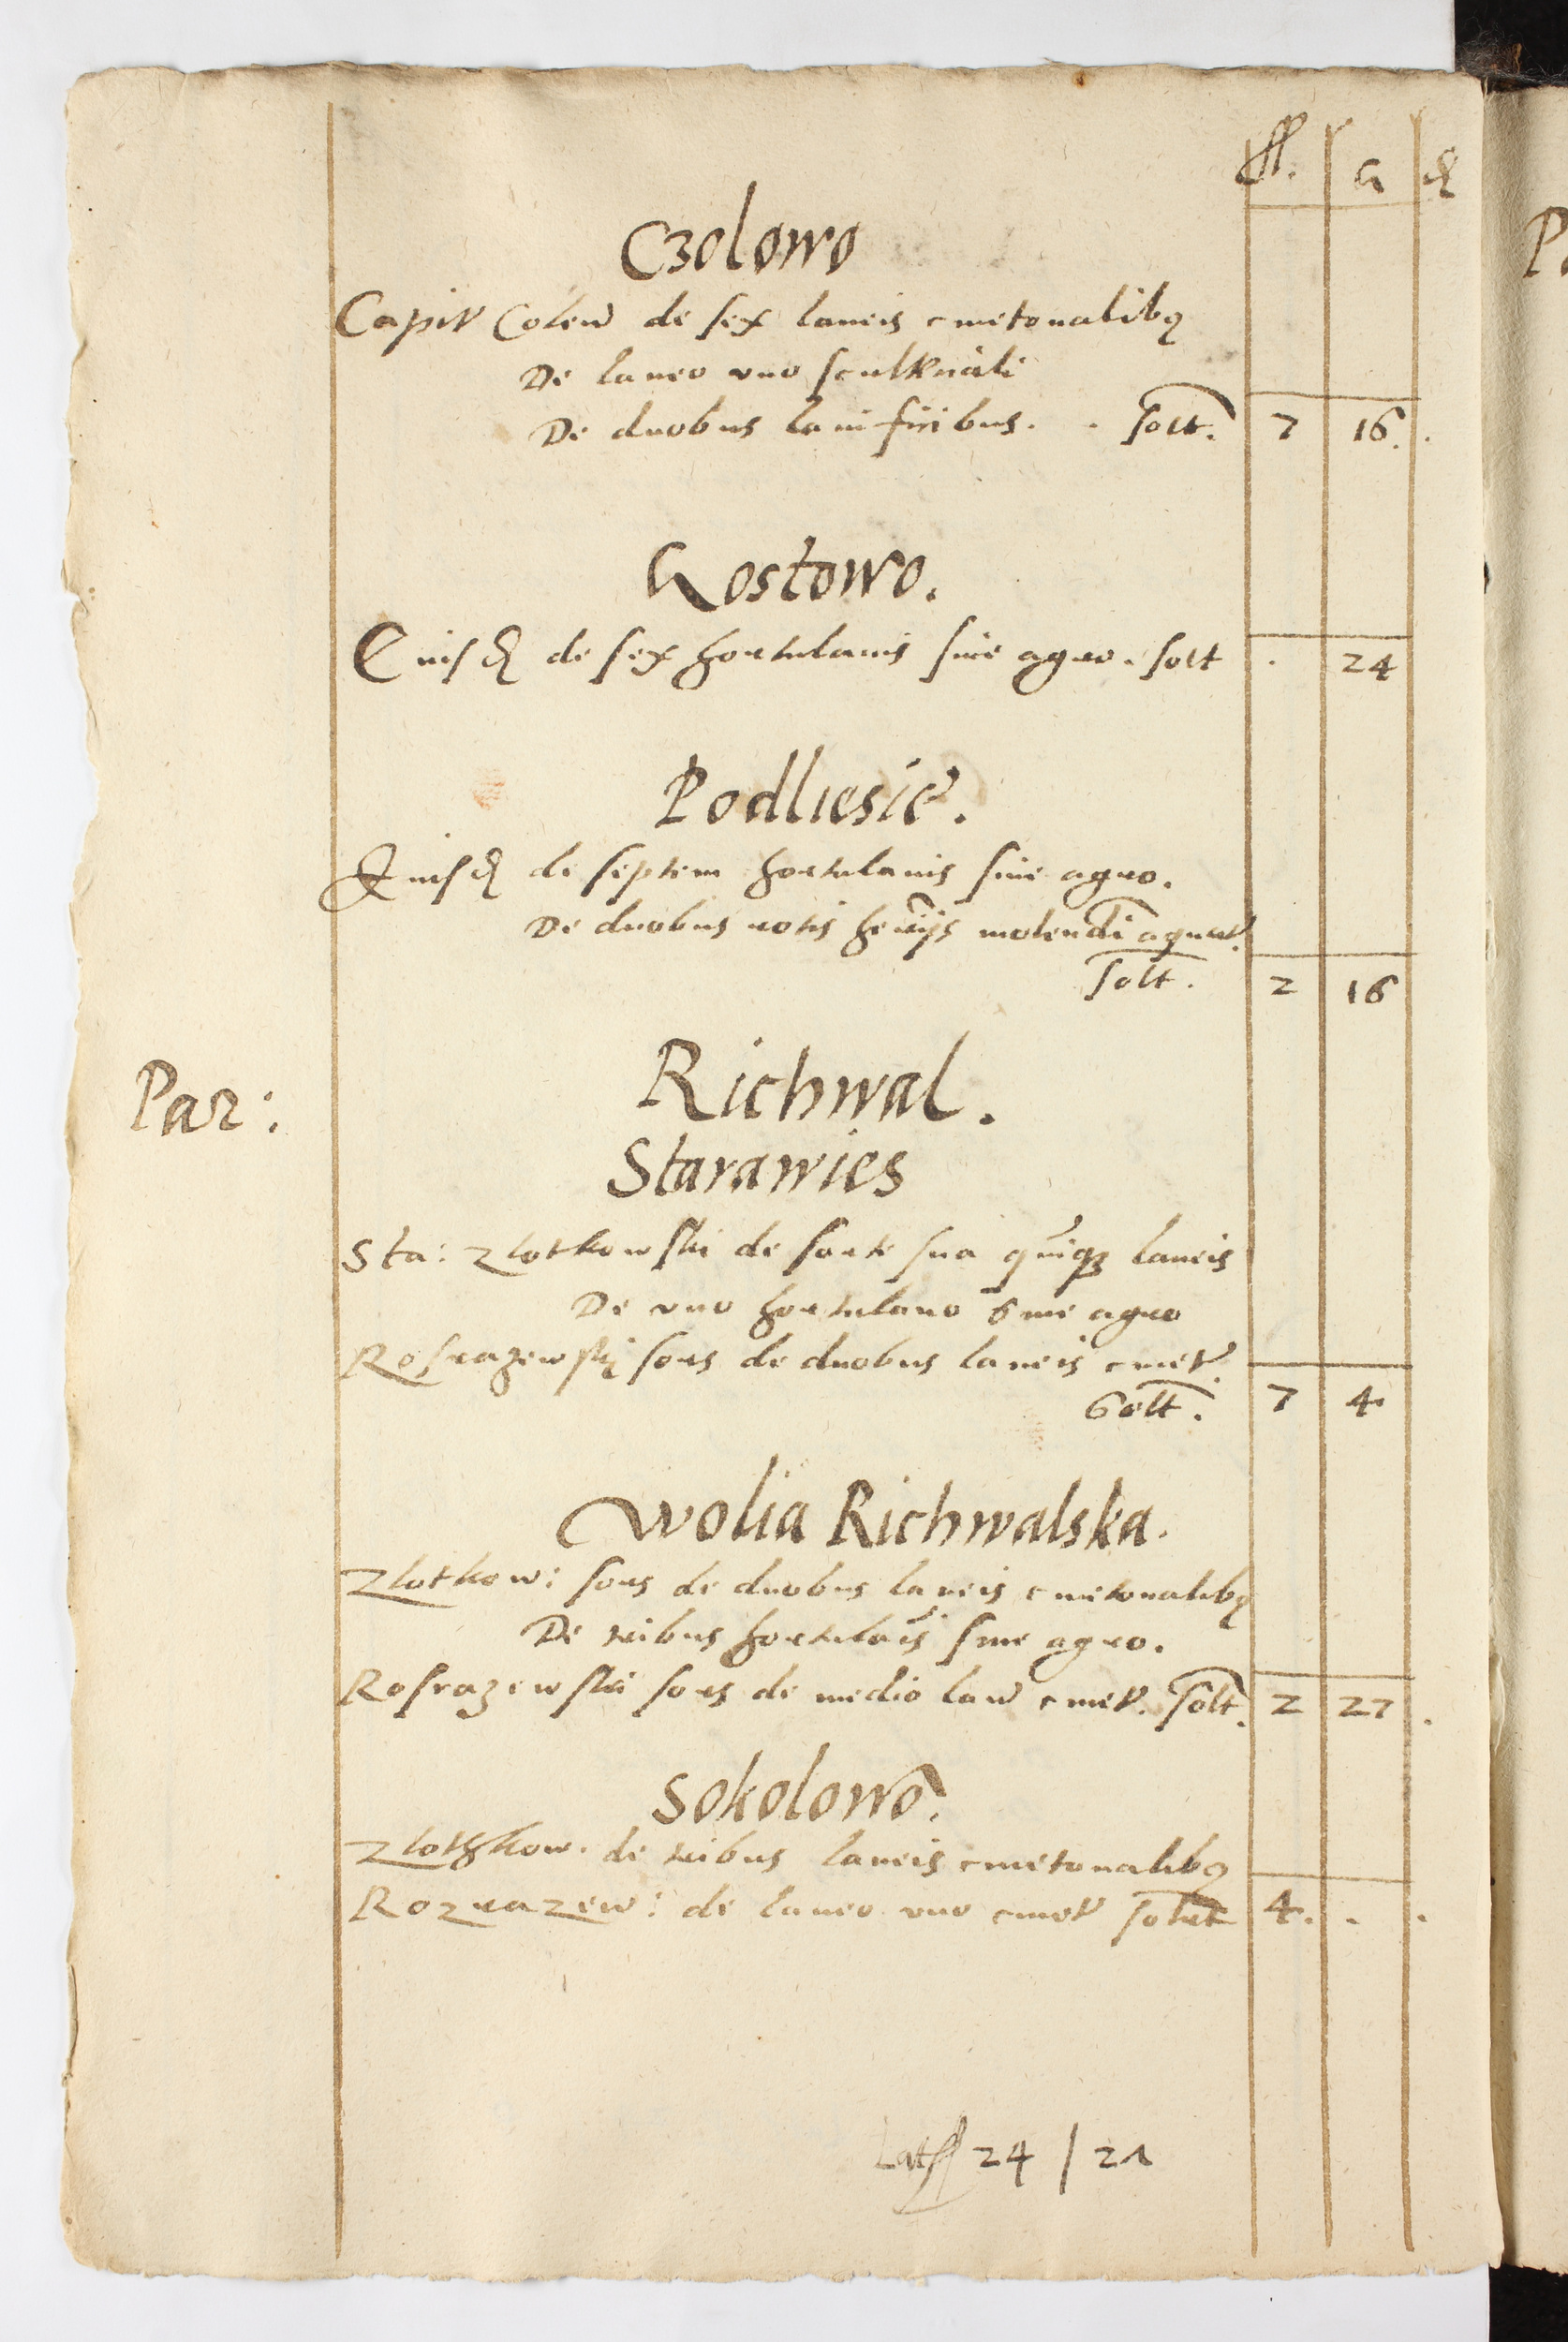 fl. G d
Czolowo
Capit Colen de sex laneis cmetonalibq
De laneo uno scultetiali
De duobus lanificibus. . solt. 7 16. .
Gostowo.
Eiusd de sex hortulanis sine agro. solt . 24
Podliesie.
Eiusd de septem hortulanis sine agro.
De duobus rotis molendi aquat.
solt. 2 16
Par: Richwal.
Starawies
Sta: Zlotkowski de sorte sua quinqz laneis
De uno hortulano sine agro
Rosrazewsky sors de duobus laneis cmet.
Solt. 7 4
Wolia Richwalska.
Zlotkow: sors de duobus laneis cmetonalibq
De tribus hortulais sine agro.
Rosrazewski sors de medio lan cmet. Solt. 2 27 .
Sokolowo.
Zlothkow. de tribus laneis cmetonalibq
Rozrazew: de laneo uno cmet solut 4. . .
Lats fl 24 / 21